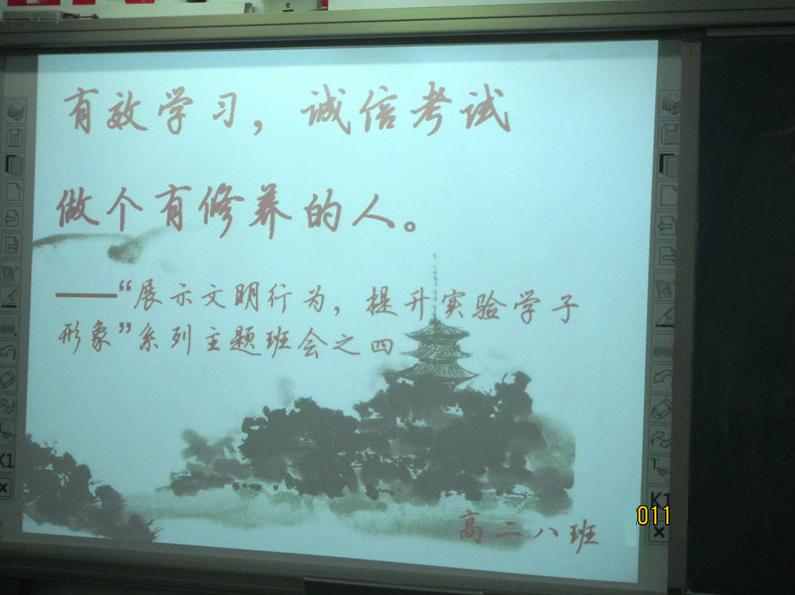 有效学习，诚信考试
做个有修养的人。
——“展示文明行为，提升实验学子
形象”系列主题班会之四
高二八班
K1
K1
011